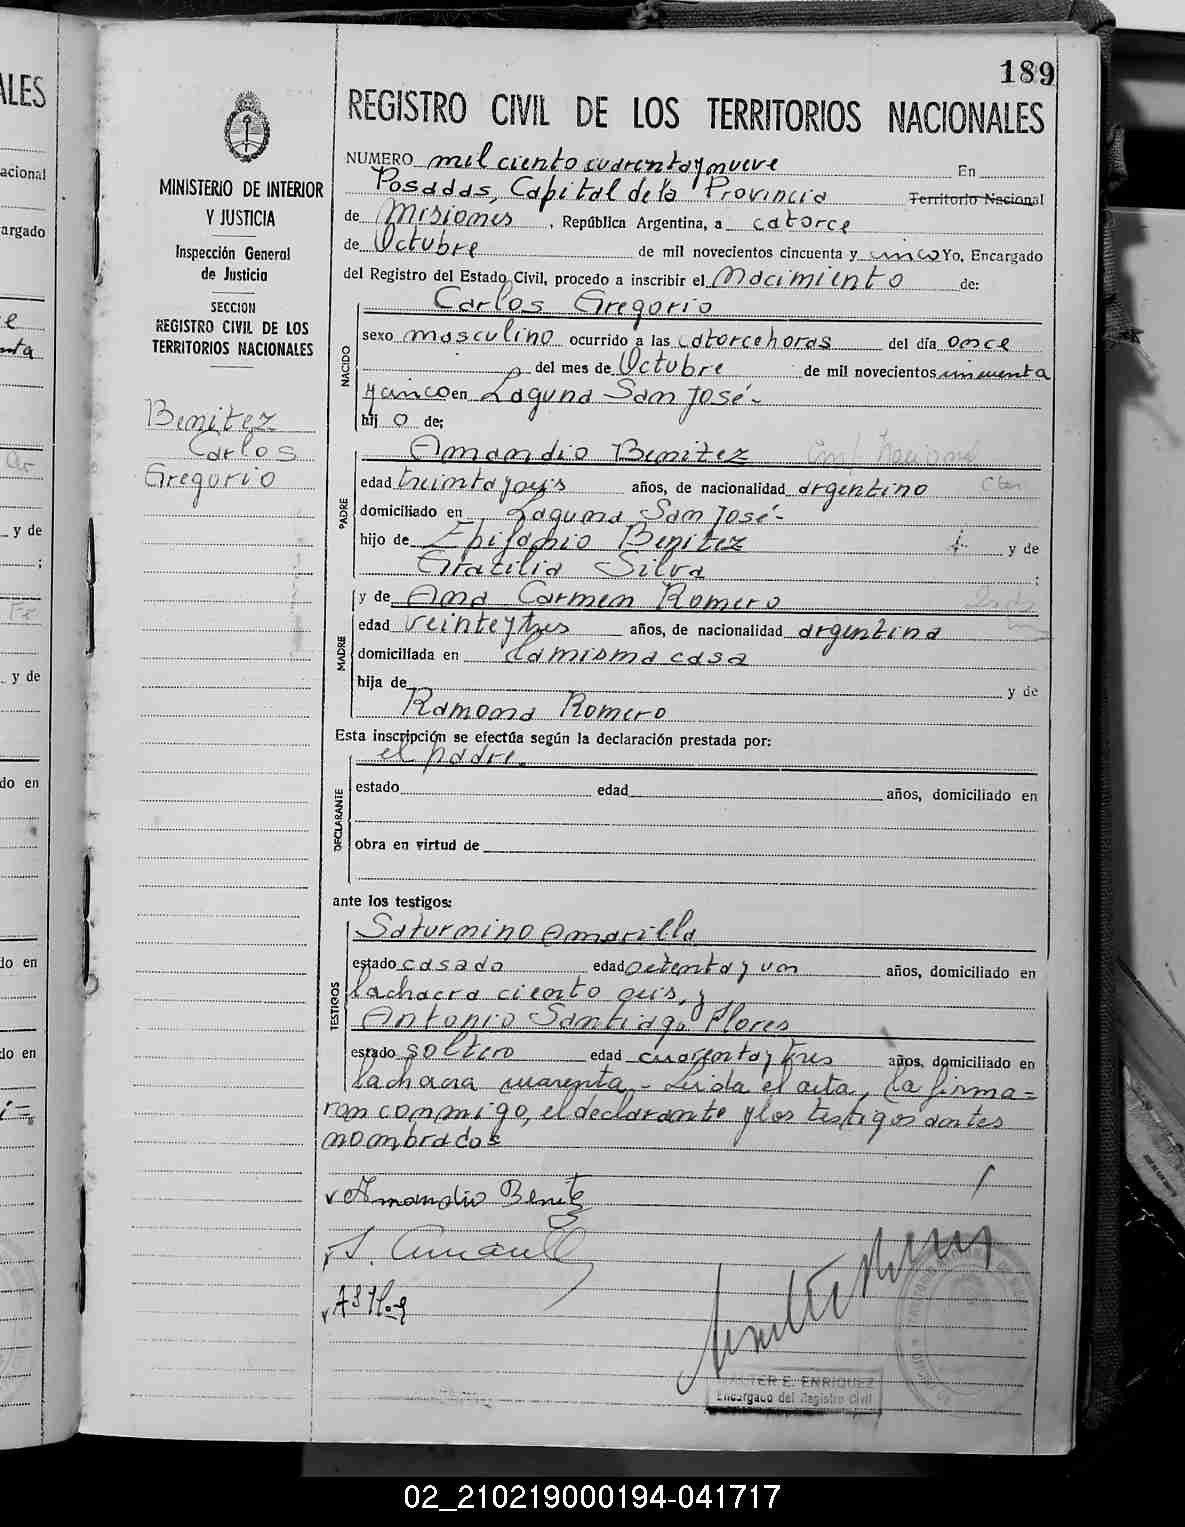 189
REGISTRO CIVIL DE LOS TERRITORIOS NACIONALES
MINISTERIO DE INTERIOR
Y JUSTICIA
Inspección General
de Justicia
SECCION
REGISTRO CIVIL DE LOS
TERRITORIOS NACIONALES
Benitez
Carlos
Gregorio
NUMERO mil ciento cuarenta y nueve En
Posadas, Capital de la Provincia Territorio Nacional
de Misiones, República Argentina, a catorce
de Octubre de mil novecientos cincuenta y cinco Yo, Encargado
del Registro del Estado Civil, procedo a inscribir el Nacimiento de:
NACIDO
Carlos Gregorio
sexo masculino ocurrido a las catorce horas del día once
del mes de Octubre de mil novecientos cincuenta
y cinco en Laguna San José-
hij o de;
PADRE
Amandio Benitez
edad treinta y seis años, de nacionalidad argentino
domiciliado en Laguna San José-
hijo de Epifanio Benitez y de
Grazilia Silva ;
MADRE
y de Ana Carmen Romero
edad veinte y tres años, de nacionalidad argentina
domiciliada en la misma casa
hija de y de
Ramona Romero
Esta inscripción se efectúa según la declaración prestada por:
el padre.
DECLARANTE
estado edad años, domiciliado en
obra en virtud de
ante los testigos:
TESTIGOS
Saturnino Amarilla
estado casado edad setenta y un años, domiciliado en
la chacra ciento seis, y
Antonio Santiago Flores
estado soltero edad cuarenta y tres años, domiciliado en
la chacra cuarenta - Leida el acta, la firma=
ron conmigo, el declarante y los testigos antes
nombrados
Amandio Benitez
WALTER E. ENRIQUEZ
Encargado del Registro Civil
ALES
acional
argado
y de
;
y de
do en
do en
do en
02_210219000194-041717